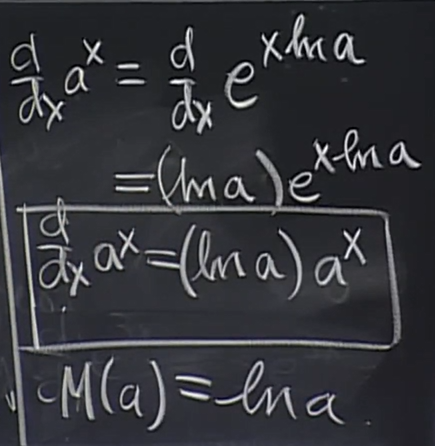 d/dx a^x = d/dx e^(x ln a)
= (ln a) e^(x·ln a)
d/dx a^x = (ln a) a^x
M(a) = ln a